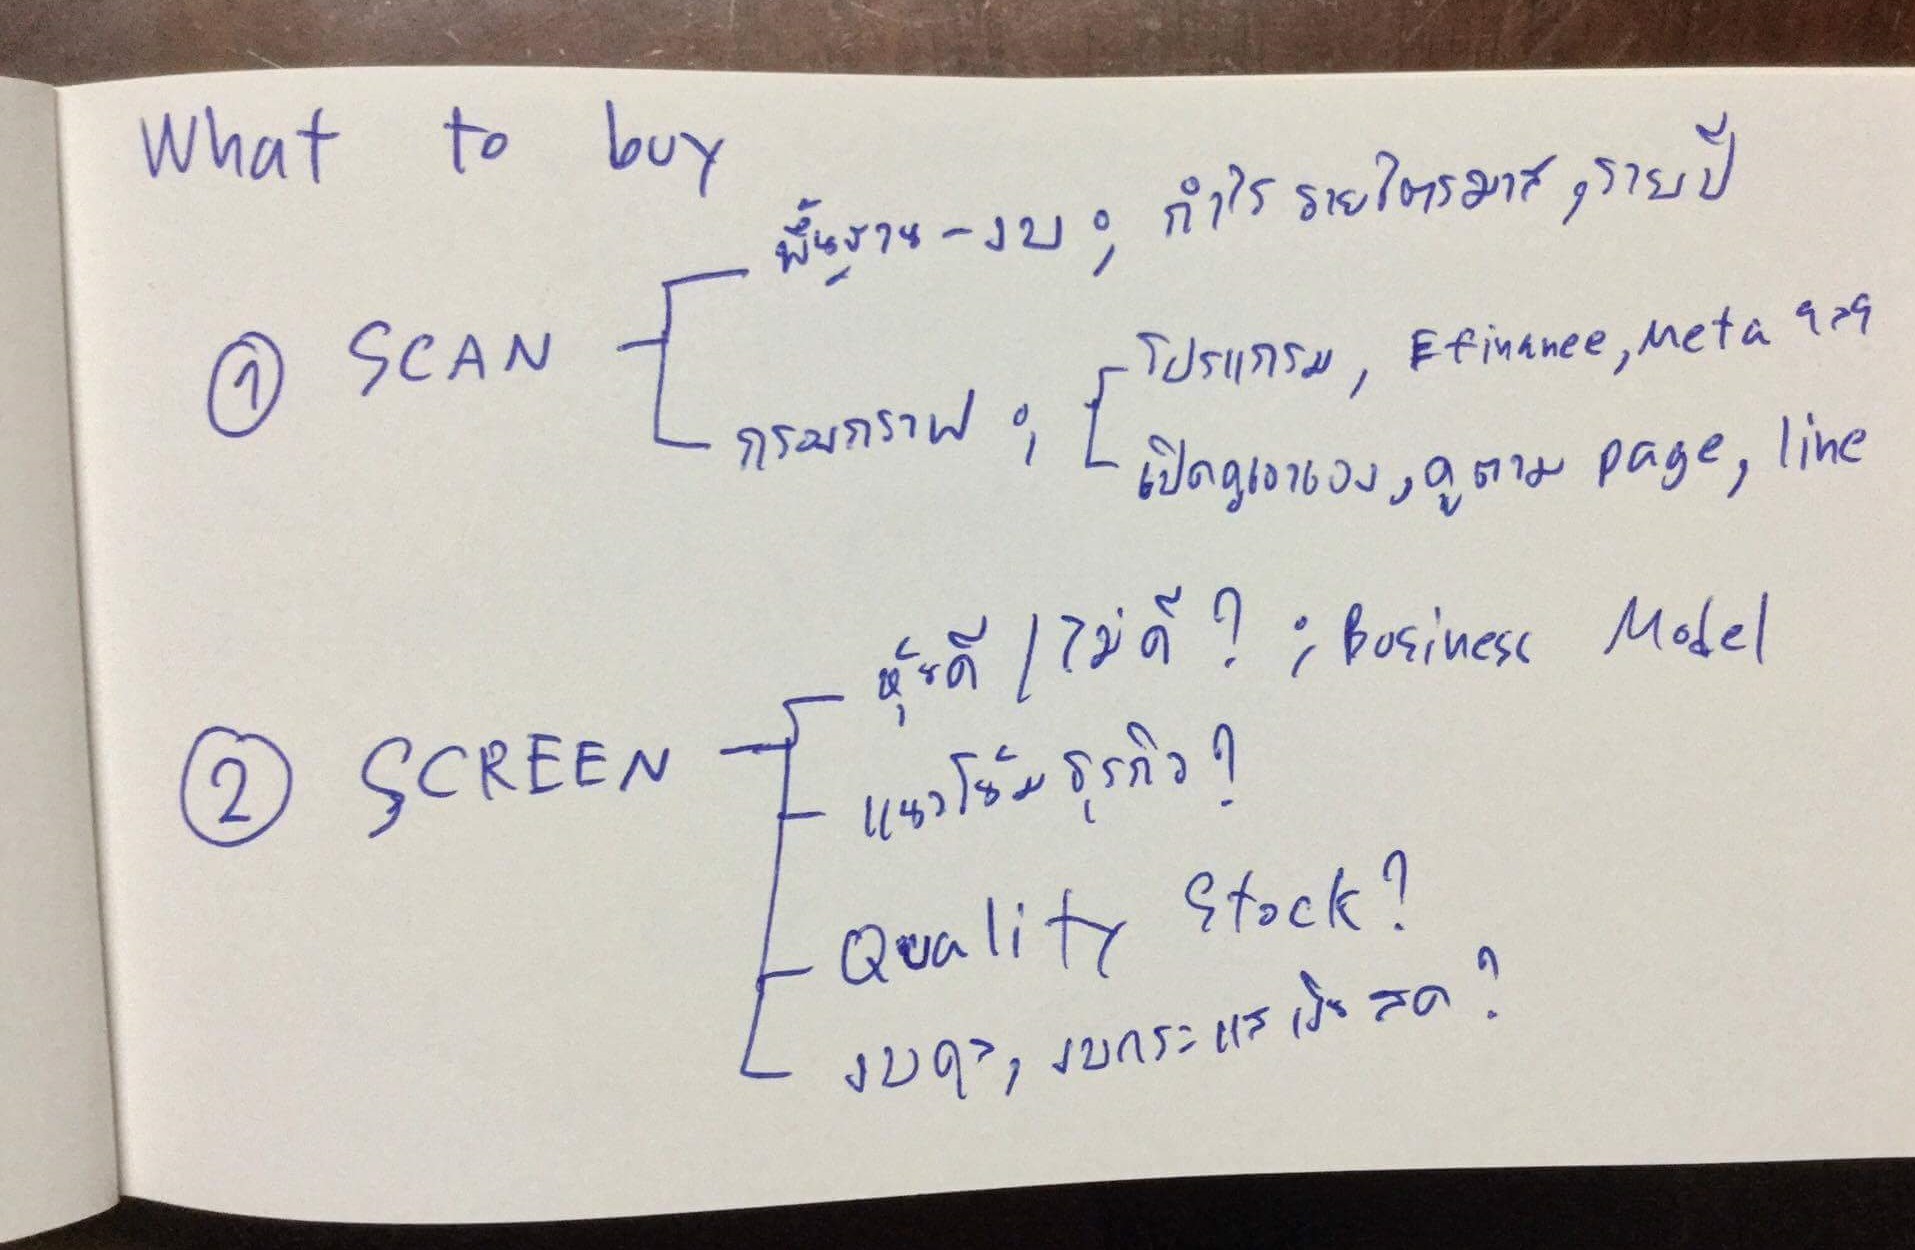 What to buy
พื้นฐาน - งบ ; กำไร รายไตรมาส, รายปี
① SCAN
โปรแกรม, Efinance, Meta ฯลฯ
กรองกราฟ ;
เปิดดูเอาเอง, ดูตาม page, line
หุ้นดี / ไม่ดี ? ; Business Model
② SCREEN
แนวโน้มธุรกิจ ?
Quality Stock ?
งบดุล, งบกระแสเงินสด ?